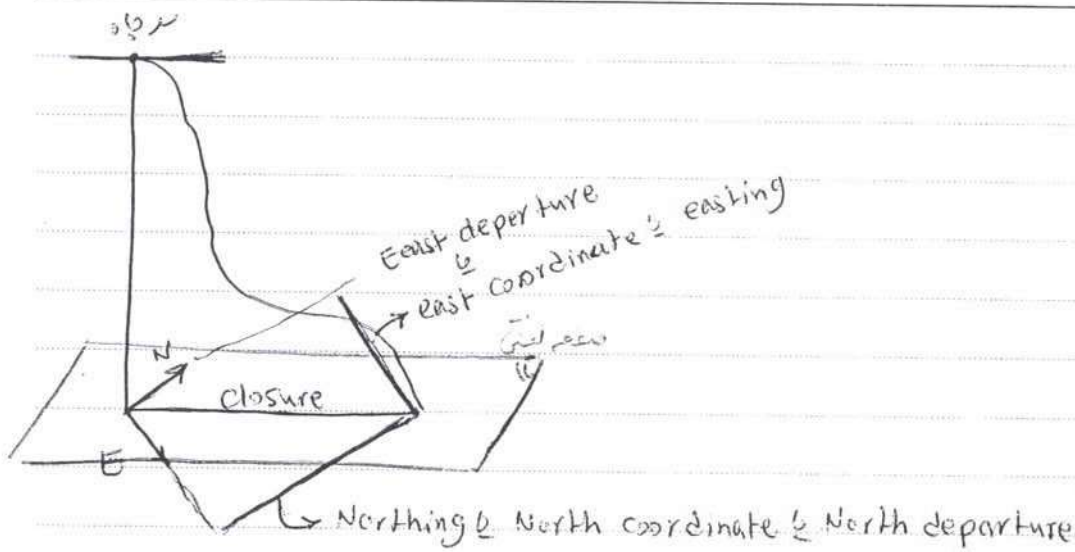 سر چاه
Eeast deperture
یا
east coordinate یا easting
N
closure
E
Northing یا North coordinate یا North departure